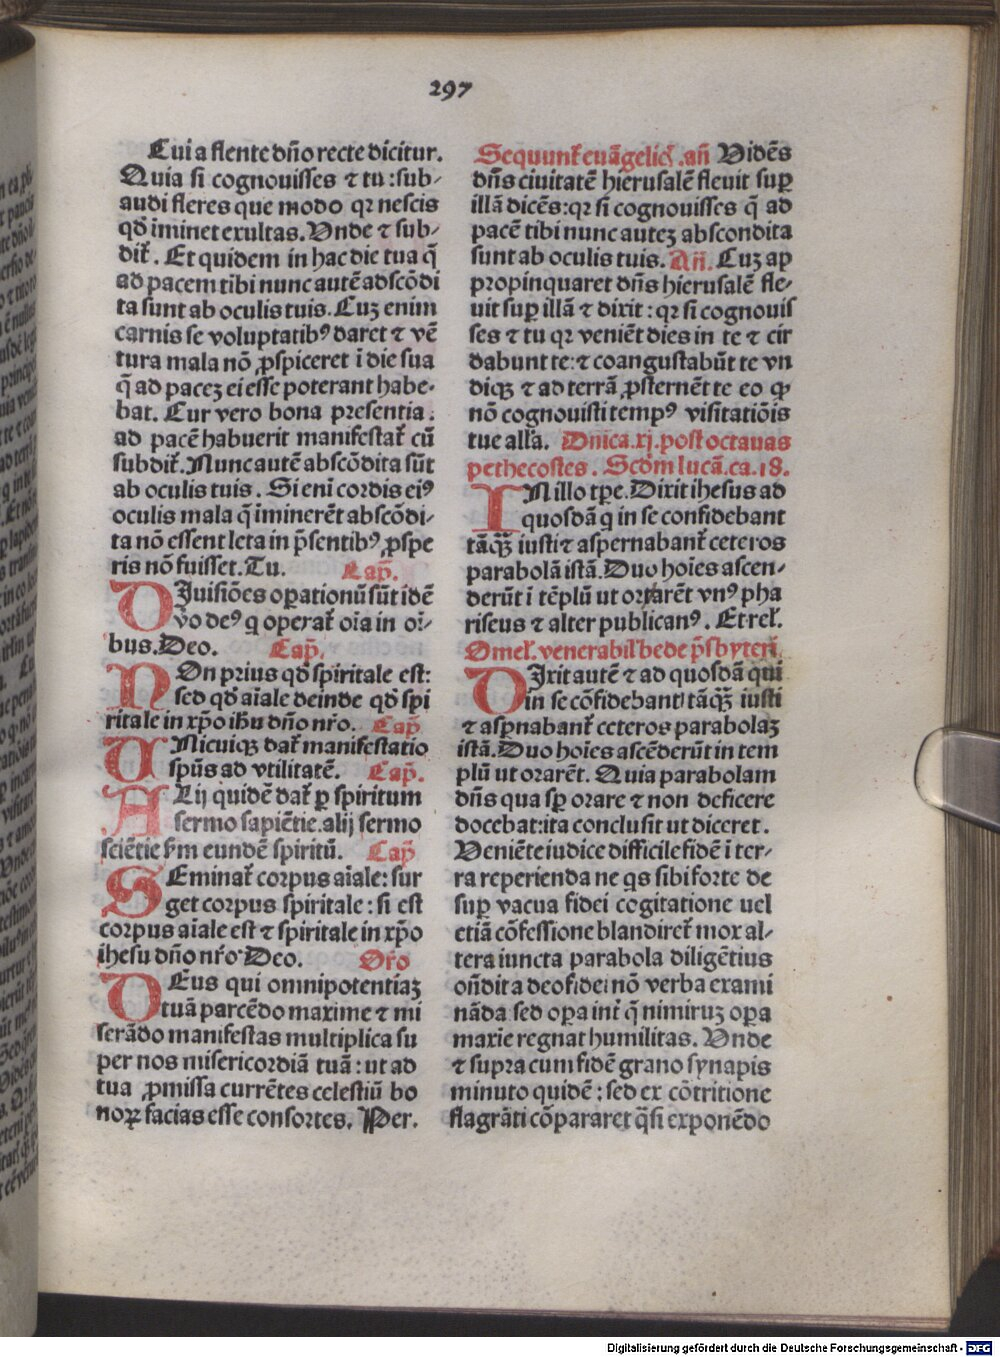 297
Cui a flente dño recte dicitur.
Quia si cognouisses ⁊ tu : sub-
audi fleres que modo qꝛ nescis
qđ iminet exultas. Unde ⁊ sub-
dit̃. Et quidem in hac die tua q̃
ad pacem tibi nunc autē adscōdi
ta sunt ab oculis tuis. Cuꝫ enim
carnis se voluptatibꝰ daret ⁊ vē
tura mala nō ꝓspiceret ī die sua
q̃ ad paceꝫ ei esse poterant habe-
bat. Cur vero bona presentia .
ad pacē habuerit manifestat̃ cū
subdit̃. Nunc autē abscōdita sūt
ab oculis tuis. Si eni cordis eiꝰ
oculis mala q̃ iminerēt abscōdi-
ta nō essent leta in p̄sentibꝰ ꝓspe
ris nō fuisset. Tu. Cap̃.
DIuisiōes oꝑationū sūt idē
ṽo deꝰ q operat̃ oīa in oī-
bus. Deo. Cap̃.
NOn prius qđ spiritale est:
sed qđ aīale deinde qđ spi
ritale in xp̄o ihu dño nr̄o. Cap̃
UNicuiqꝫ dat̃ manifestatio
sp̄us ad vtilitatē. Cap̃.
ALij quidē dat̃ ꝑ spiritum
sermo sapiētie. alij sermo
sciētie ẜm eundē spiritū. Cap̃
SEminat̃ corpus aīale: sur
get corpus spiritale : si est
corpus aīale est ⁊ spiritale in xp̄o
ihesu dño nr̄o Deo. Or̃o
DEus qui omnipotentiaꝫ
tuā parcēdo maxime ⁊ mi
serādo manifestas multiplica su
per nos misericordiā tuā : ut ad
tua ꝓmissa currētes celestiū bo
noꝝ facias esse consortes. Per.
Sequunt̃ euāgelic̃ .añ Vidēs
dñs ciuitatē hierusalē fleuit suꝑ
illā dicēs: qꝛ si cognouisses q̃ ad
pacē tibi nunc auteꝫ abscondita
sunt ab oculis tuis. Añ. Cuꝫ ap
propinquaret dñs hierusalē fle-
uit suꝑ illā ⁊ dixit : qꝛ si cognouis
ses ⁊ tu qꝛ veniēt dies in te ⁊ cir
dabunt te: ⁊ coangustabūt te vn
diqꝫ ⁊ ad terrā ꝓsternēt te eo ꝙ
nō cognouisti tempꝰ visitatiōis
tue alľa. Dñica. xj. post octauas
pethecostes. Scd̄m lucā. ca. 18.
IN illo tp̄e. Dixit ihesus ad
quosdā q in se confidebant
tāq̃ꝫ iusti ⁊ aspernabant̃ ceteros
parabolā istā. Duo hoīes ascen-
derūt ī tēplū ut orarēt vnꝰ pha
riseus ⁊ alter publicanꝰ. Et rel̃.
Omel̃. venerabil̃ bede p̄sbyteri
DIxit autē ⁊ ad quosdā qui
in se cōfidebant tāq̃ꝫ iusti
⁊ asꝑnabant̃ ceteros parabolaꝫ
istā. Duo hoīes ascēderūt in tem
plū ut orarēt. Quia parabolam
dñs qua sꝑ orare ⁊ non deficere
docebat: ita conclusit ut diceret.
Veniēte iudice difficile fidē ī ter-
ra reperienda ne qs sibi forte de
suꝑ vacua fidei cogitatione uel
etiā cōfessione blandiret̃ mox al-
tera iuncta parabola diligētius
oñdit a deo fidei nō verba exami
nāda sed oꝑa int̃ q̃ nimiruꝫ oꝑa
maxīe regnat humilitas. Unde
⁊ supra cum fidē grano synapis
minuto quidē : sed ex cōtritione
flagrāti cōpararet q̃si exponēdo
Digitalisierung gefördert durch die Deutsche Forschungsgemeinschaft - DFG